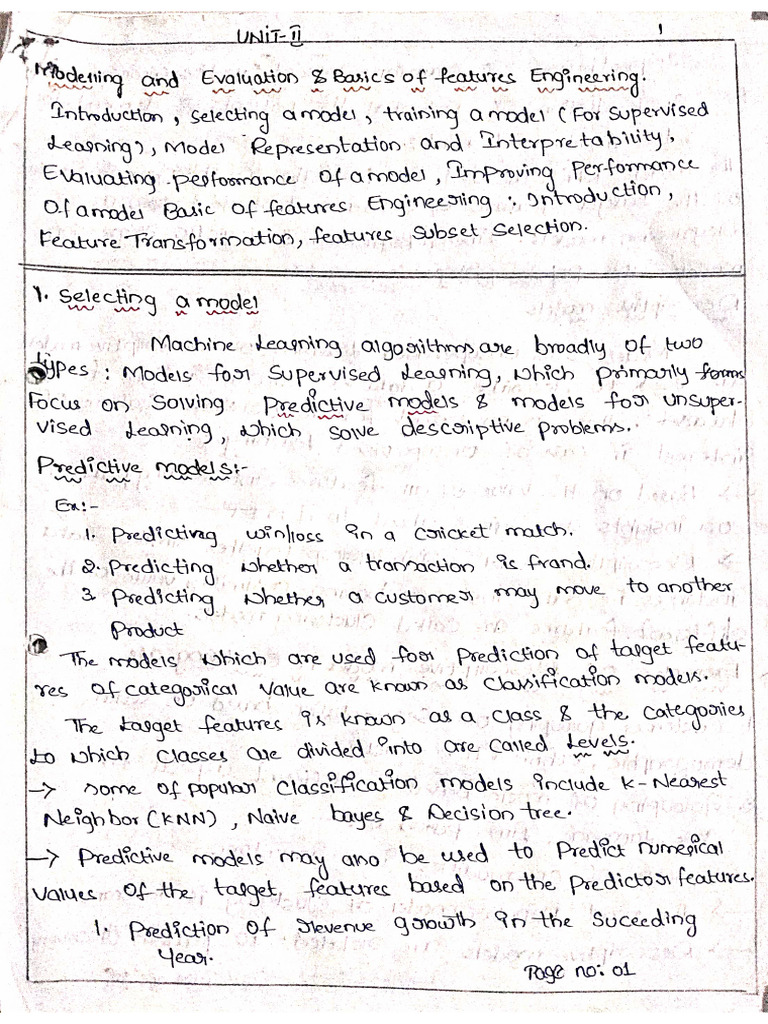 UNIT-II
1
Modelling and Evaluation & Basics of features Engineering.
Introduction, selecting a model, training a model (For supervised
Learning), Model Representation and Interpretability,
Evaluating performance Of a model, Improving Performance
Of a model Basic Of features Engineering: Introduction,
Feature Transformation, features Subset Selection.
1. Selecting a model
Machine Learning algorithms are broadly of two
types: Models for Supervised Learning, which primarily forms
Focus on Solving Predictive models & models for unsuper-
vised Learning, which solve descriptive problems.
Predictive models:-
Ex:-
1. Predicting win/loss in a cricket match.
2. Predicting whether a transaction is fraud.
3. Predicting whether a customer may move to another
Product
The models which are used for Prediction of target featu-
res Of categorical value are known as Classification models.
The target features is known as a class & the categories
to which classes are divided into are called Levels.
→ some of popular Classification models include k-Nearest
Neighbor (KNN), Naive bayes & Decision tree.
→ Predictive models may also be used to Predict numerical
values of the target features based on the Predictor features.
1. Prediction Of revenue growth in the Suceeding
Year.
Page no: 01